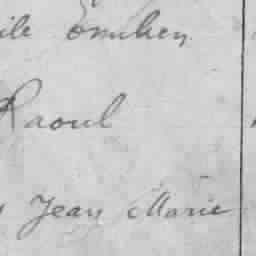 ile Emilien
Raoul
Jean Marie